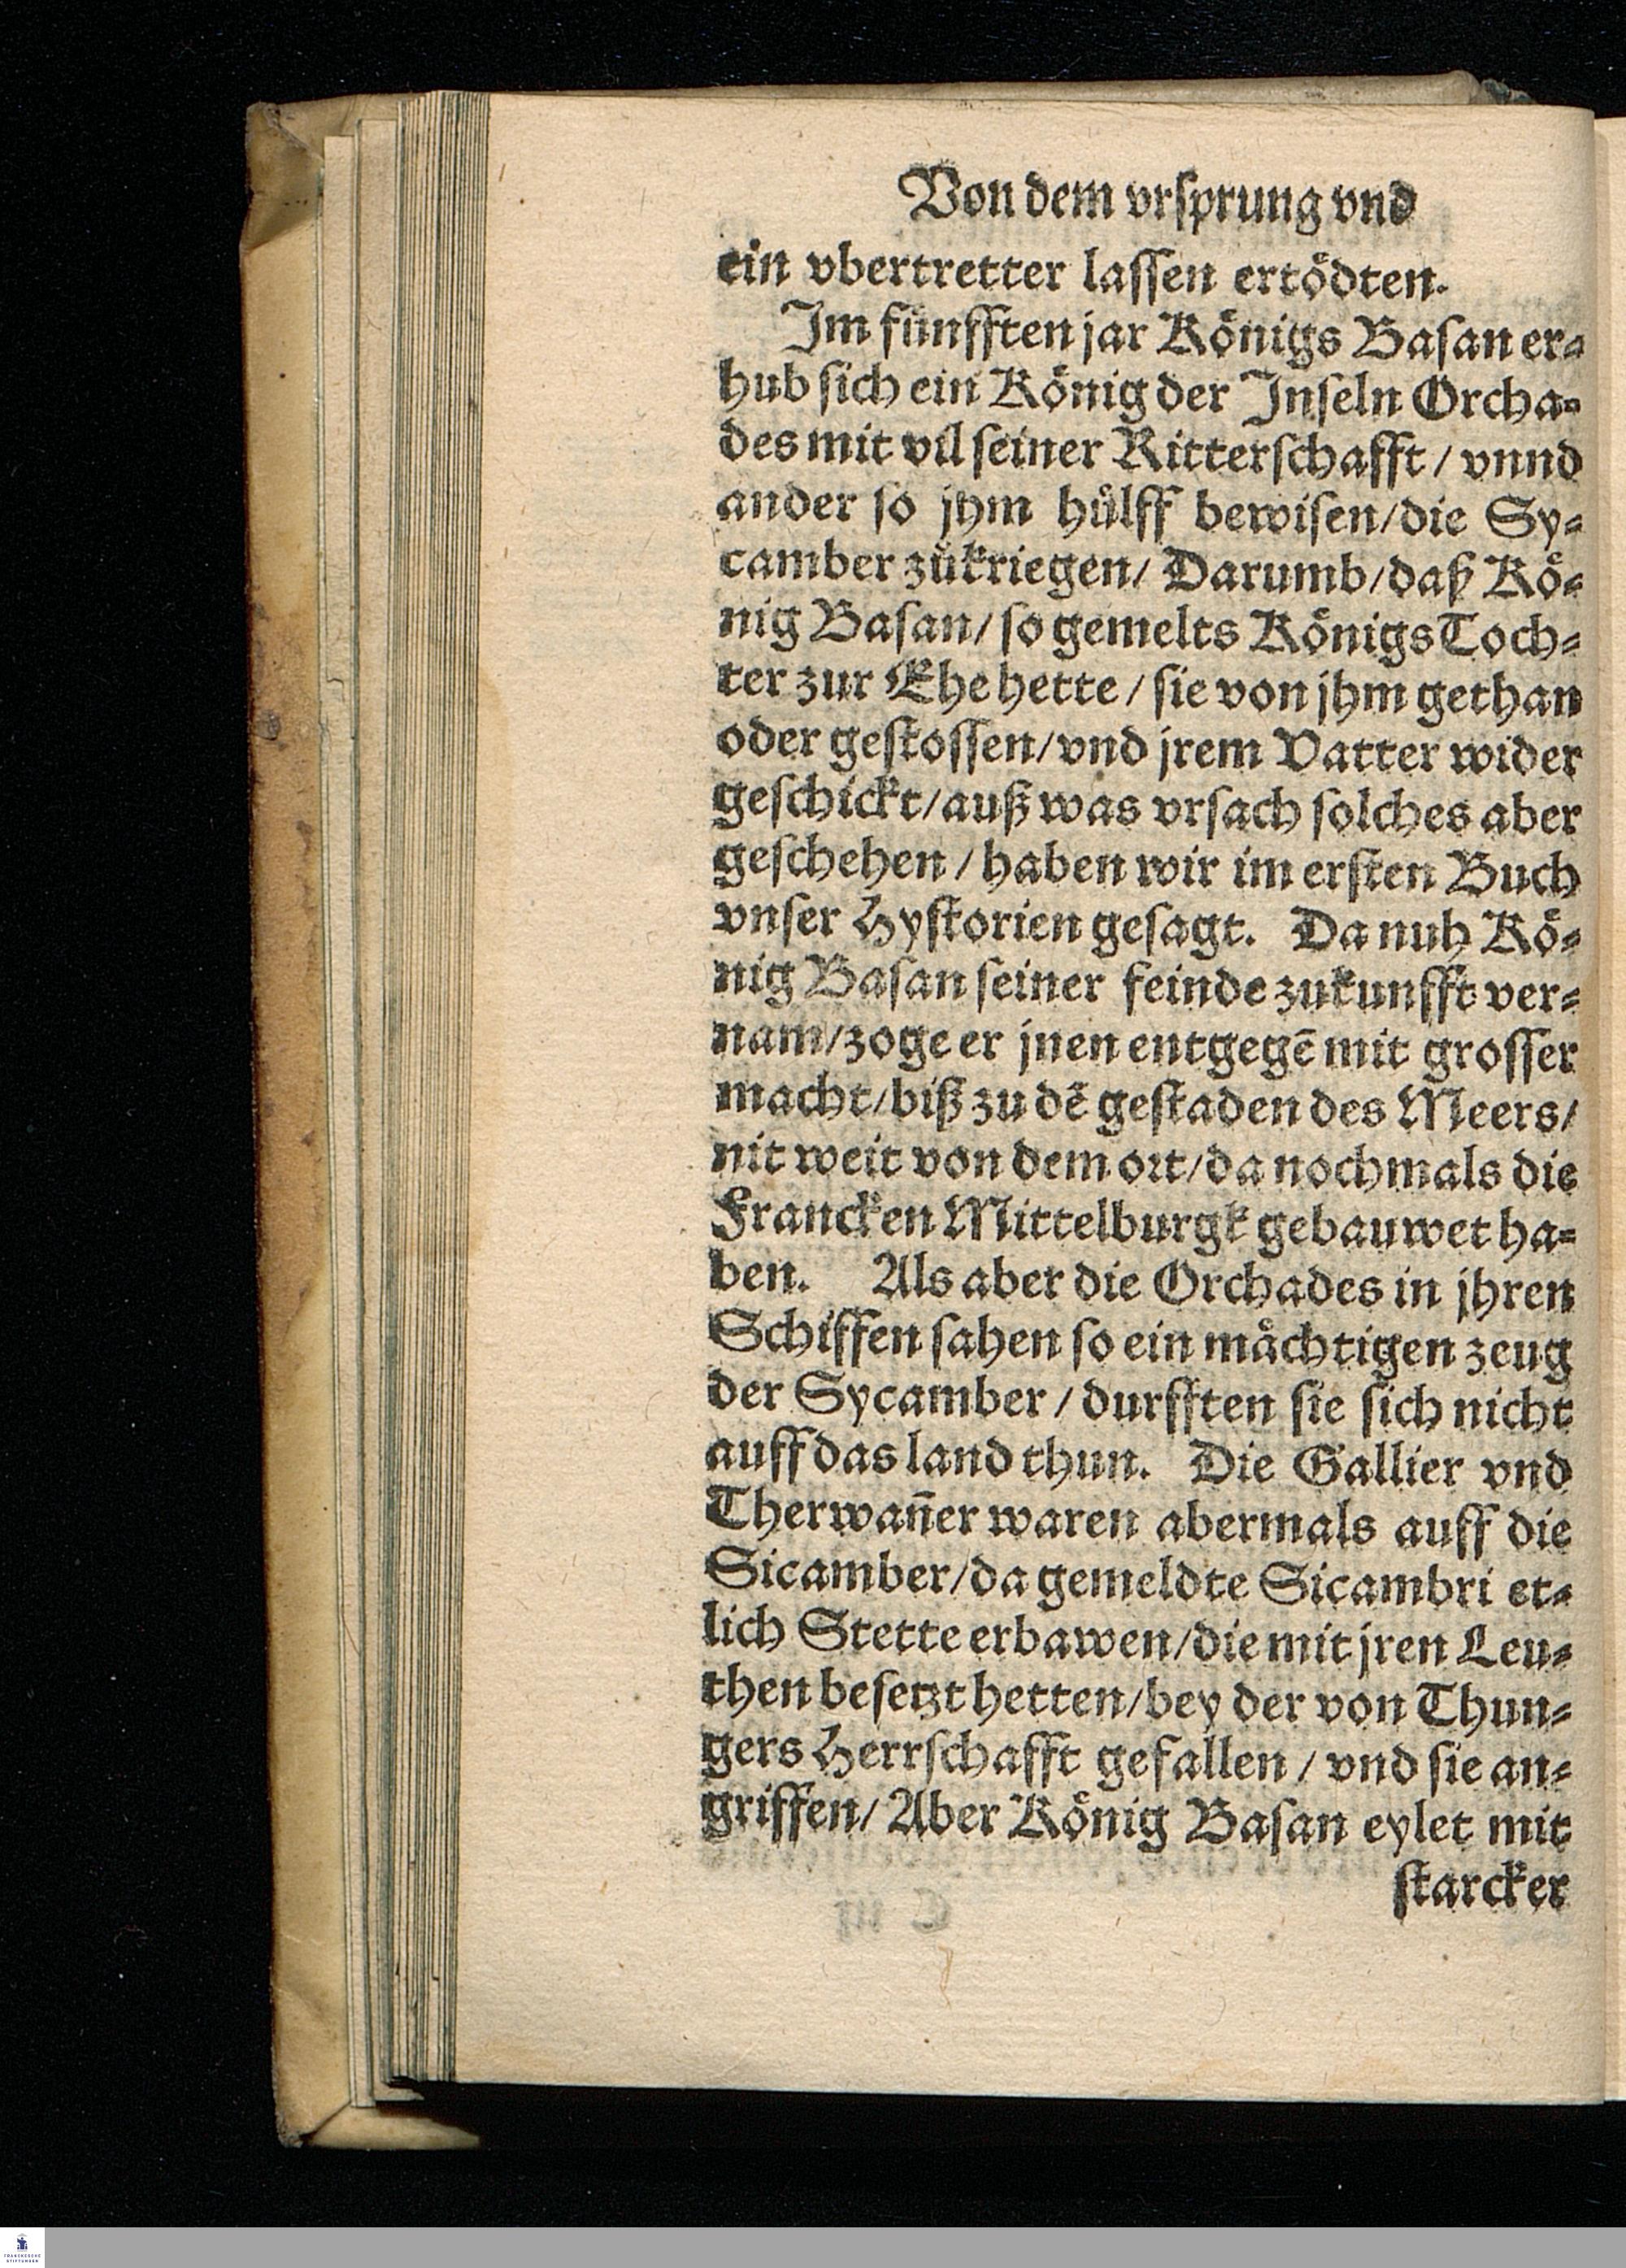 Von dem vrsprung vnd
ein vbertretter lassen ertödten.
Im fünfften jar Königs Basan er⸗
hub sich ein König der Inseln Orcha⸗
des mit vil seiner Ritterschafft / vnnd
ander so jhm hülff bewisen/die Sy⸗
camber zůkriegen/ Darumb/daß Kö⸗
nig Basan/ so gemelts Königs Toch⸗
ter zur Ehe hette / sie von jhm gethan
oder gestossen/vnd jrem Vatter wider
geschickt/auß was vrsach solches aber
geschehen / haben wir im ersten Buch
vnser Hystorien gesagt. Da nuh Kö⸗
nig Basan seiner feinde zukunfft ver⸗
nam/zoge er jnen entgegē mit grosser
macht/biß zu dē gestaden des Meers/
nit weit von dem ort/da nochmals die
Francken Mittelburgk gebauwet ha⸗
ben. Als aber die Orchades in jhren
Schiffen sahen so ein mächtigen zeug
der Sycamber / durfften sie sich nicht
auff das land thun. Die Gallier vnd
Therwan̄er waren abermals auff die
Sicamber/da gemeldte Sicambri et⸗
lich Stette erbawen/die mit jren Leu⸗
then besetzt hetten/bey der von Thun⸗
gers Herrschafft gefallen / vnd sie an⸗
griffen/ Aber König Basan eylet mit
starcker